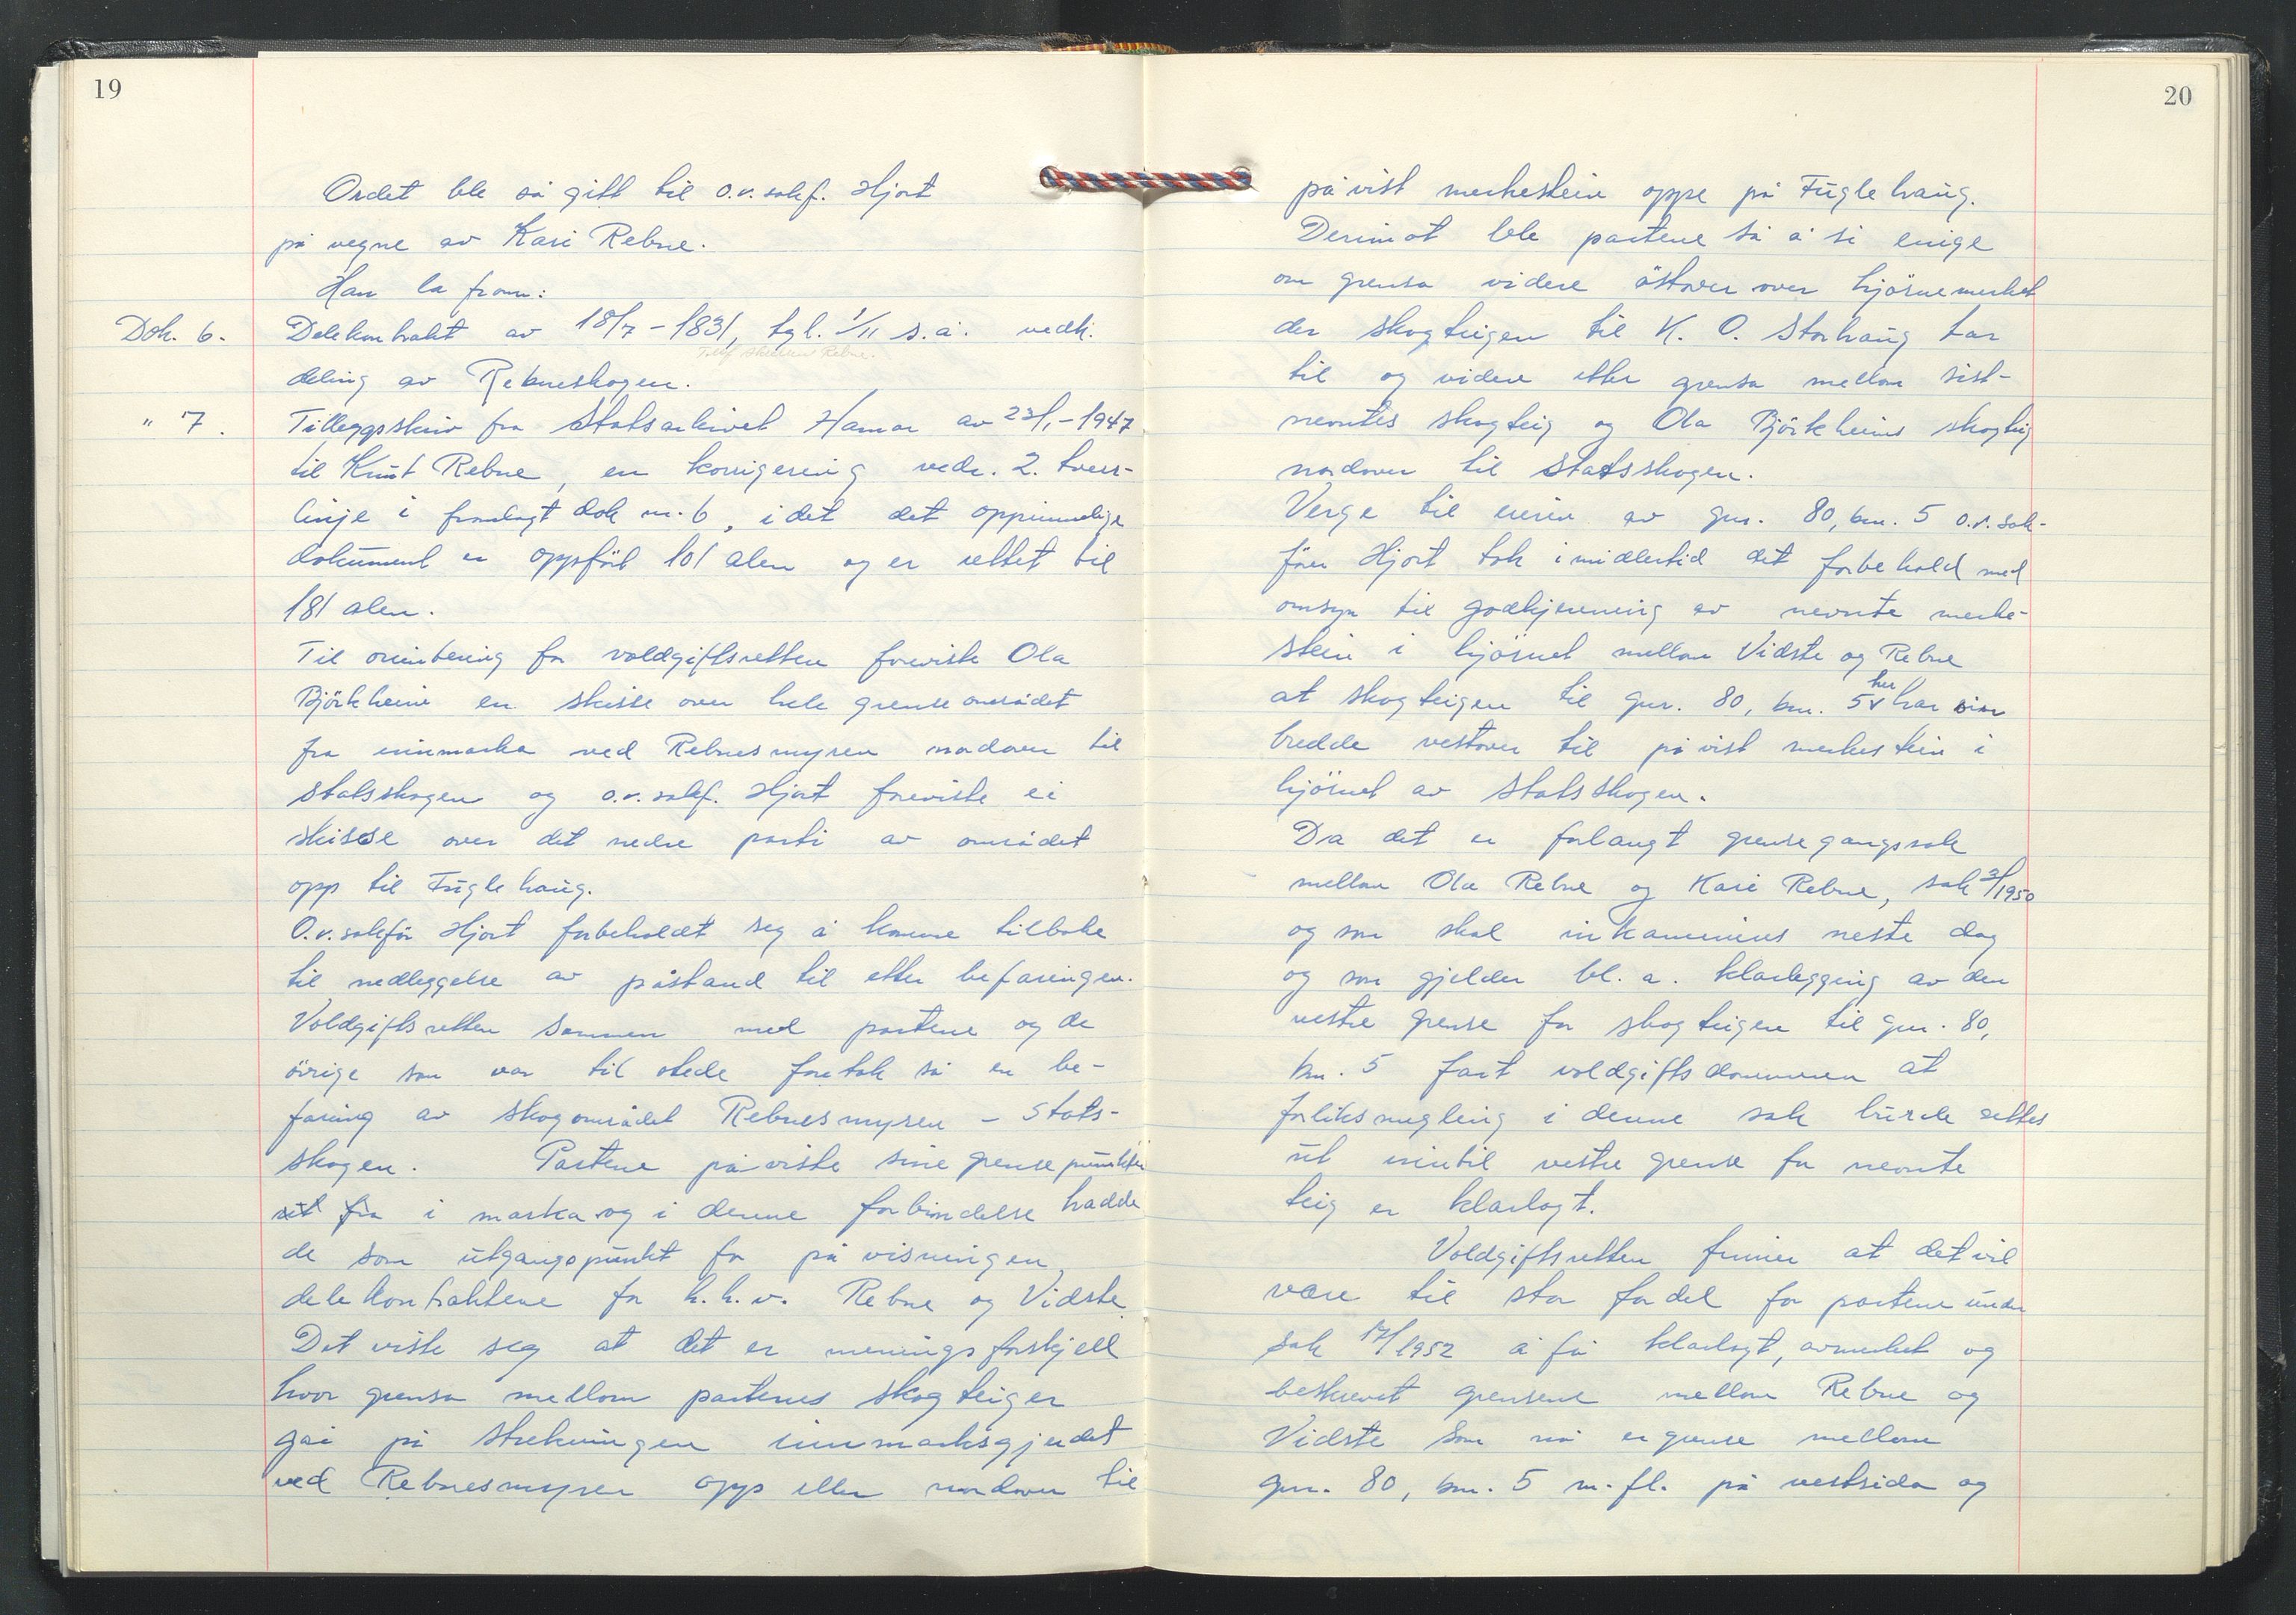 19
Ordet ble så gitt til o.r.sakf. Hjort
på vegne av Kari Rebne.
Han la fram:
Dok. 6. Delekontrakt av 18/7-1831, tgl. 1/11 s.å. vedk.
deling av Rebneskogen.
" 7. Tilleggsskriv fra Statsarkivet Hamar av 23/1-1947
til Knut Rebne, en korrigering vedr. 2. tverr-
linje i framlagt dok nr. 6, idet det opprinnelige
dokument er oppført 101 alen og er rettet til
181 alen.
Til orientering for voldgiftsretten foreviste Ola
Björkheim en skisse over hele grenseområdet
fra innmarka ved Rebnesmyren nordover til
statsskogen og o.r.sakf. Hjort foreviste ei
skisse over det nedre parti av området
opp til Fuglehaug.
O.r.sakfør Hjort forbeholdt seg å komme tilbake
til nedleggelse av påstand til etter befaringen.
Voldgiftsretten sammen med partene og de
övrige som var til stede foretok så en be-
faring av skogområdet Rebnesmyren - Stats-
skogen. Partene påviste sine grensepunkter
ut fra i marka og i denne forbindelse hadde
de som utgangspunkt for påvisningen
delekontraktene for h.h.v. Rebne og Vidste.
Det viste seg at det er meningsforskjell
hvor grensa mellom partenes skogteiger
går på strekningen innmarksgjerdet
ved Rebnesmyren opp eller nordover til
20
påvist merkestein oppe på Fuglehaug.
Derimot ble partene så å si enige
om grensa videre östover over hjörnemerket
der skogteigen til K. O. Storhaug tar
til og videre etter grensa mellom sist-
nevntes skogteig og Ola Björkheims skogteig
nordover til Statsskogen.
Verge til eieren av gnr. 80, bnr. 5 o.r.sak-
förer Hjort tok imidlertid det forbehold med
omsyn til godkjenning av nevnte merke-
stein i hjörnet mellom Vidste og Rebne
at skogteigen til gnr. 80, bnr. 5 her har sin
bredde vestover til påvist merkestein i
hjörnet av Statsskogen.
Da det er forlangt grensegangssak
mellom Ola Rebne og Kari Rebne, sak 2/1950
og som skal inkamineres neste dag
og som gjelder bl. a. klarlegging av den
vestre grense for skogteigen til gnr. 80,
bnr. 5 fant voldgiftsdommeren at
forliksmegling i denne sak burde settes
ut inntil vestre grense for nevnte
teig er klarlagt.
Voldgiftsretten finner at det vil
være til stor fordel for partene under
sak 17/1952 å få klarlagt, avmerket og
beskrevet grensene mellom Rebne og
Vidste som nå er grense mellom
gnr. 80, bnr. 5 m.fl. på vestsida og